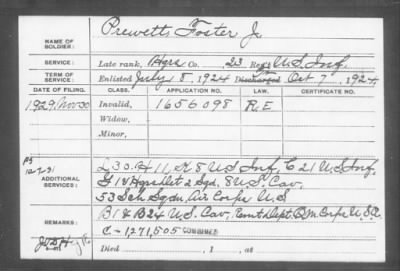 NAME OF SOLDIER: Prewett, Foster J.
SERVICE: Late rank, Hqrs Co. 23 Reg't U.S. Inf.
TERM OF SERVICE: Enlisted July 8, 1924 Discharged Oct 7, 1924
DATE OF FILING. CLASS. APPLICATION NO. LAW. CERTIFICATE NO.
1929 Nov 30 Invalid, 1656098 R.E
Widow,
Minor,
12-7-31
ADDITIONAL SERVICES: K 8 U.S Inf, C 21 U.S Inf,
8 U.S. Cav.
53 Sch Sqdn, Air Corps U.S
REMARKS: B1 & B24 U.S. Cav,
C-1271505 COMBINED
Died , 1 , at